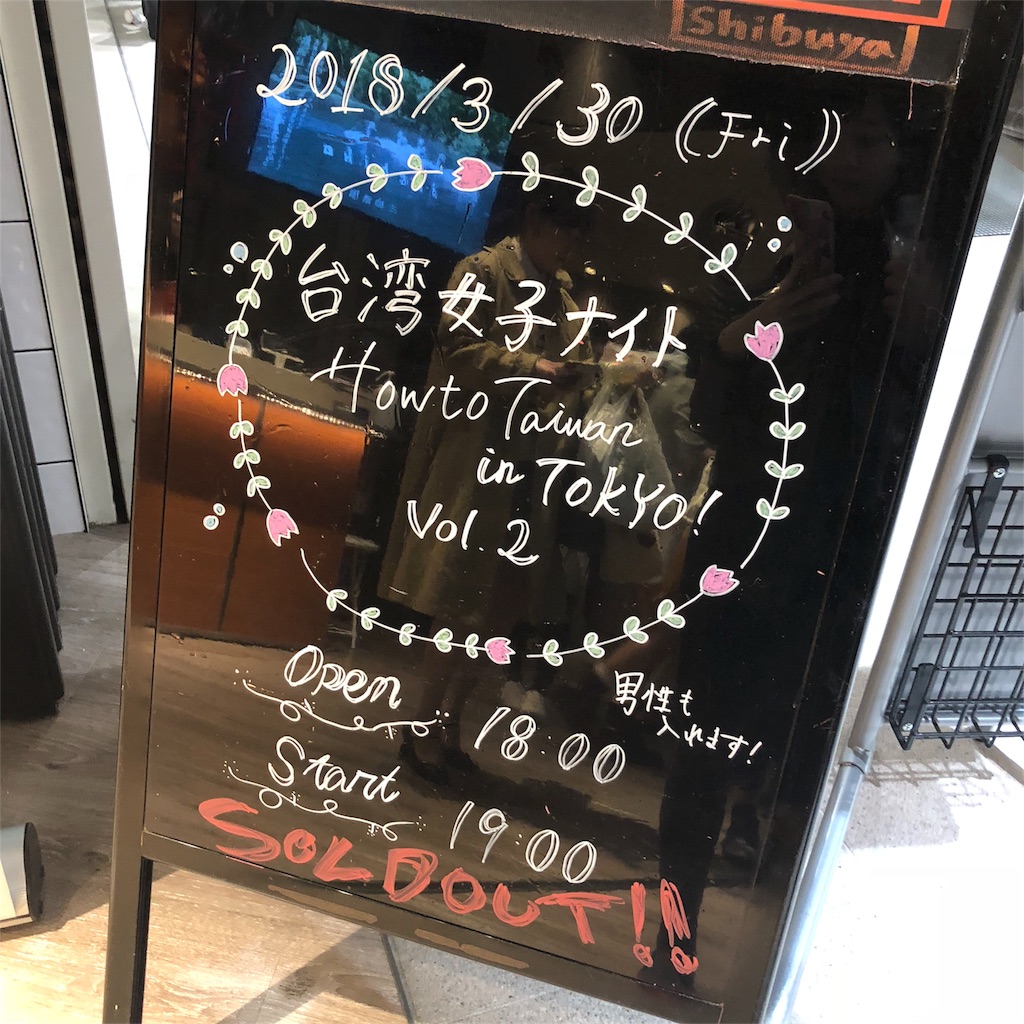 Shibuya
2018/3/30 (Fri)
台湾女子ナイト
How to Taiwan
in TOKYO!
Vol.2
Open 18:00
男性も
入れます!
Start 19:00
SOLDOUT!!